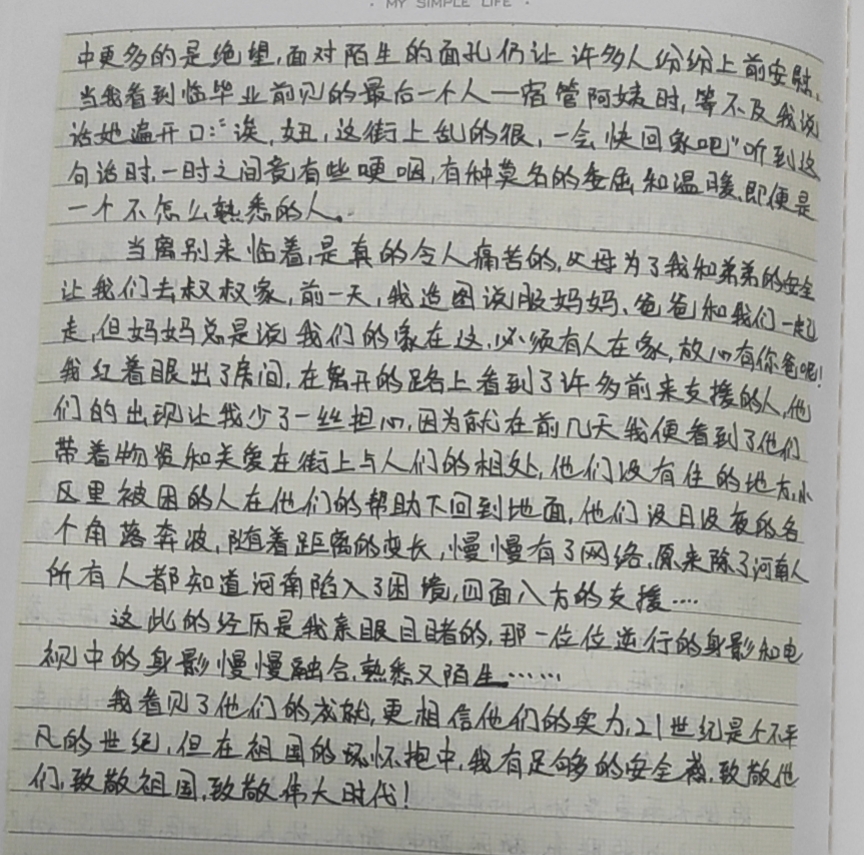 · MY SIMPLE LIFE ·
中更多的是绝望,面对陌生的面孔仍让许多人纷纷上前安慰,
当我看到临毕业前见的最后一个人一宿管阿姨时,等不及我说
话她遍开口:"诶,妞,这街上乱的很,一会快回家吧"听到这
句话时,一时之间竟有些哽咽,有种莫名的委屈和温暖,即便是
一个不怎么熟悉的人。
当离别来临着,是真的令人痛苦的,父母为了我和弟弟的安全
让我们去叔叔家,前一天,我造图说服妈妈、爸爸和我们一起
走,但妈妈总是说我们的家在这,必须有人在家,放心有你爸呢!
我红着眼出了房间,在离开的路上看到了许多前来支援的人,他
们的出现让我少了一丝担心,因为就在前几天我便看到了他们
带着物资和关爱在街上与人们的相处,他们没有住的地方,小
区里被困的人在他们的帮助下回到地面,他们没日没夜的各
个角落奔波,随着距离的变长,慢慢有了网络,原来除了河南人
所有人都知道河南陷入了困境,四面八方的支援····
这此的经历是我亲眼目睹的,那一位位逆行的身影和电
视中的身影慢慢融合,熟悉又陌生……
我看见了他们的成就,更相信他们的实力,21世纪是个不平
凡的世纪,但在祖国的怀抱中,我有足够的安全感,致敬他
们,致敬祖国,致敬伟大时代!